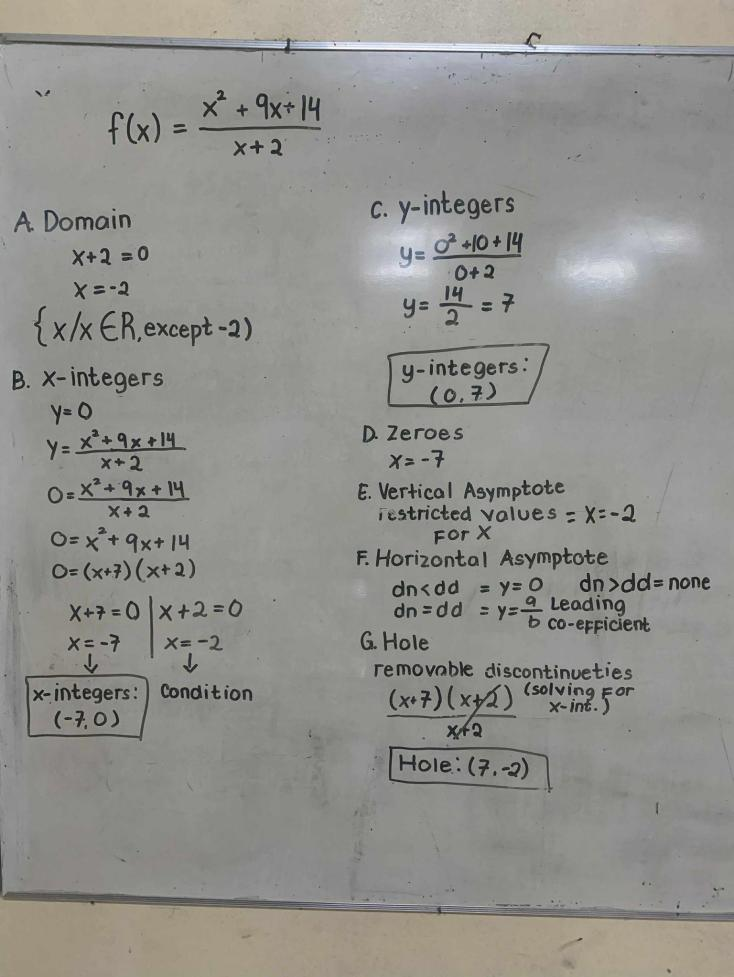 f(x) = x² + 9x+14 / x+2
A. Domain
x+2 = 0
x = -2
{x/x ∈ R, except -2)
B. x-integers
y=0
y = x²+9x+14 / x+2
0 = x²+9x+14 / x+2
0 = x²+9x+14
0=(x+7)(x+2)
x+7=0 | x+2=0
x=-7 | x=-2
↓ ↓
x-integers: Condition
(-7,0)
C. y-integers
y= 0²+10+14 / 0+2
y= 14/2 = 7
y-integers:
(0,7)
D. Zeroes
x=-7
E. Vertical Asymptote
restricted values = x=-2
For x
F. Horizontal Asymptote
dn<dd = y=0 dn>dd=none
dn=dd = y= a/b Leading
co-efficient
G. Hole
removable discontinueties
(x+7)(x+2) / x+2 (solving For
x-int.)
Hole: (7,-2)